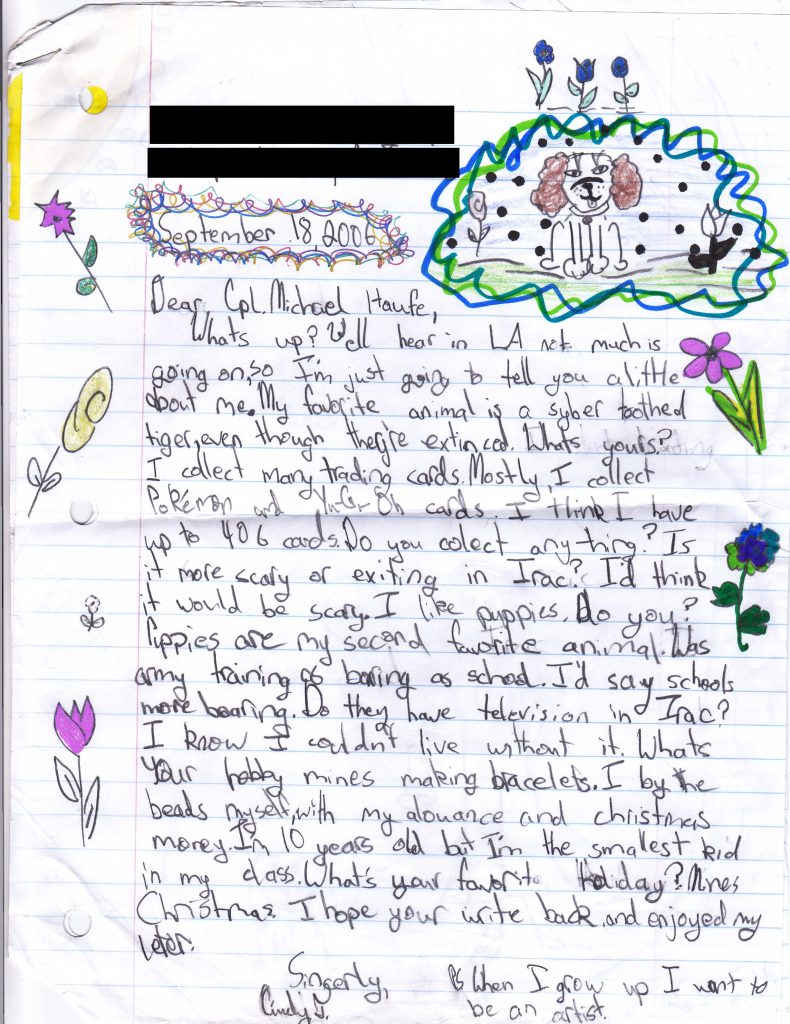 September 18, 2006
Dear, Cpl. Michael Haufe,
Whats up? Well hear in LA not much is
going on, so I'm just going to tell you a little
about me. My favorite animal is a syber toothed
tiger, even though they're extinced. Whats yours?
I collect many trading cards. Mostly, I collect
Pokémon and Yu-Gi-Oh cards. I think I have
up to 406 cards. Do you colect any thing? Is
it more scary or exiting in Irac? I'd think
it would be scary. I like puppies. Do you?
Puppies are my second favorite animal. Was
army training as boring as school. I'd say schools
more boaring. Do they have television in Irac?
I know I couldn't live without it. Whats
your hobby mines making bracelets. I by the
beads myself, with my alouance and christmas
money. I'm 10 years old but I'm the smallest kid
in my class. What's your favorite Holiday? Mines
Christmas. I hope your write back, and enjoyed my
leter.
Singerly,
Cindy G.
PS When I grow up I want to
be an artist.